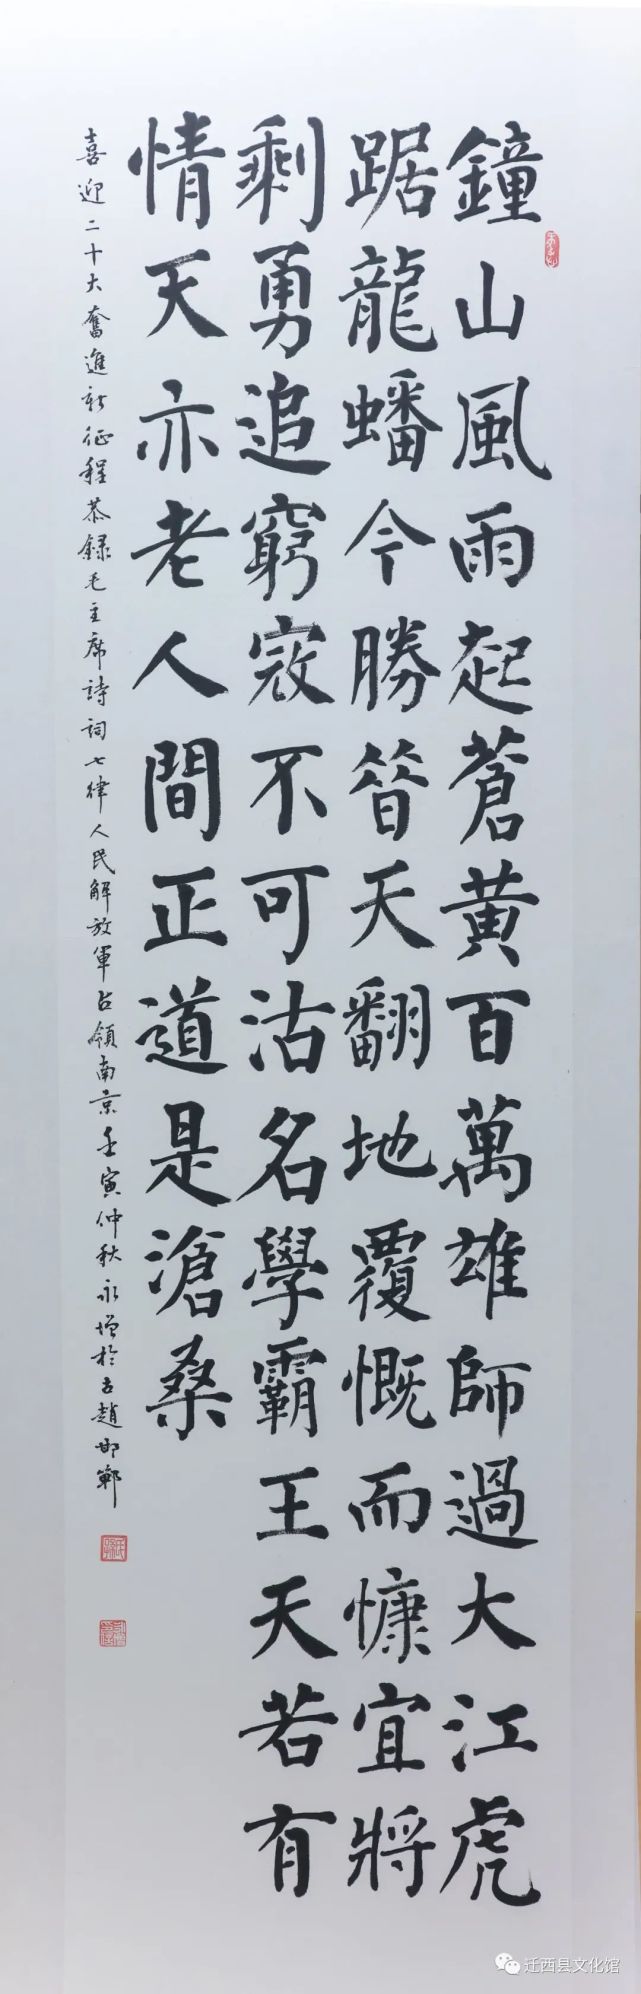 鐘山風雨起蒼黄百萬雄師過大江虎
踞龍蟠今勝昔天翻地覆慨而慷宜將
剩勇追窮寇不可沽名學霸王天若有
情天亦老人間正道是滄桑
喜迎二十大奮進新征程恭録毛主席詩詞七律人民解放軍占領南京壬寅仲秋永增於古趙邯鄲
迁西县文化馆